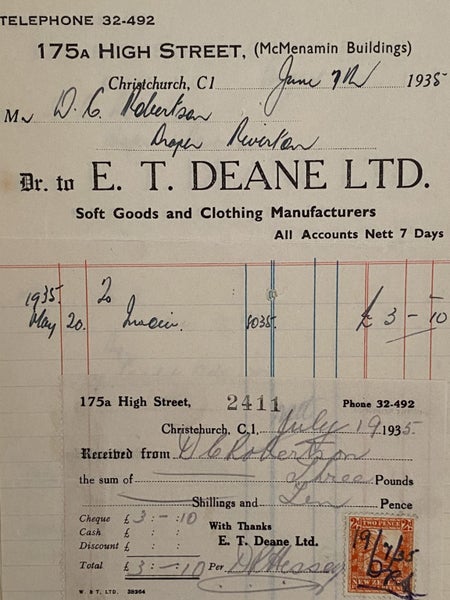 TELEPHONE 32-492
175A HIGH STREET, (McMenamin Buildings)
Christchurch, C1 June 7th 1935
Mr D. C. Robertson
Draper Riverton
Dr. to E. T. DEANE LTD.
Soft Goods and Clothing Manufacturers
All Accounts Nett 7 Days
1935. To
May 20. Invoice. 5035. £ 3 - - 10
175a High Street, 2411 Phone 32-492
Christchurch, C.1. July 19 1935
Received from D C Robertson
the sum of Three Pounds
Shillings and Ten Pence
Cheque £ 3 : - : 10 With Thanks
Cash £ : : E. T. Deane Ltd.
Discount £ : :
Total £ 3 - - 10 Per
W. & T. LTD. 38364
2d TWO PENCE 2d
19/7/35
NEW ZEALAND